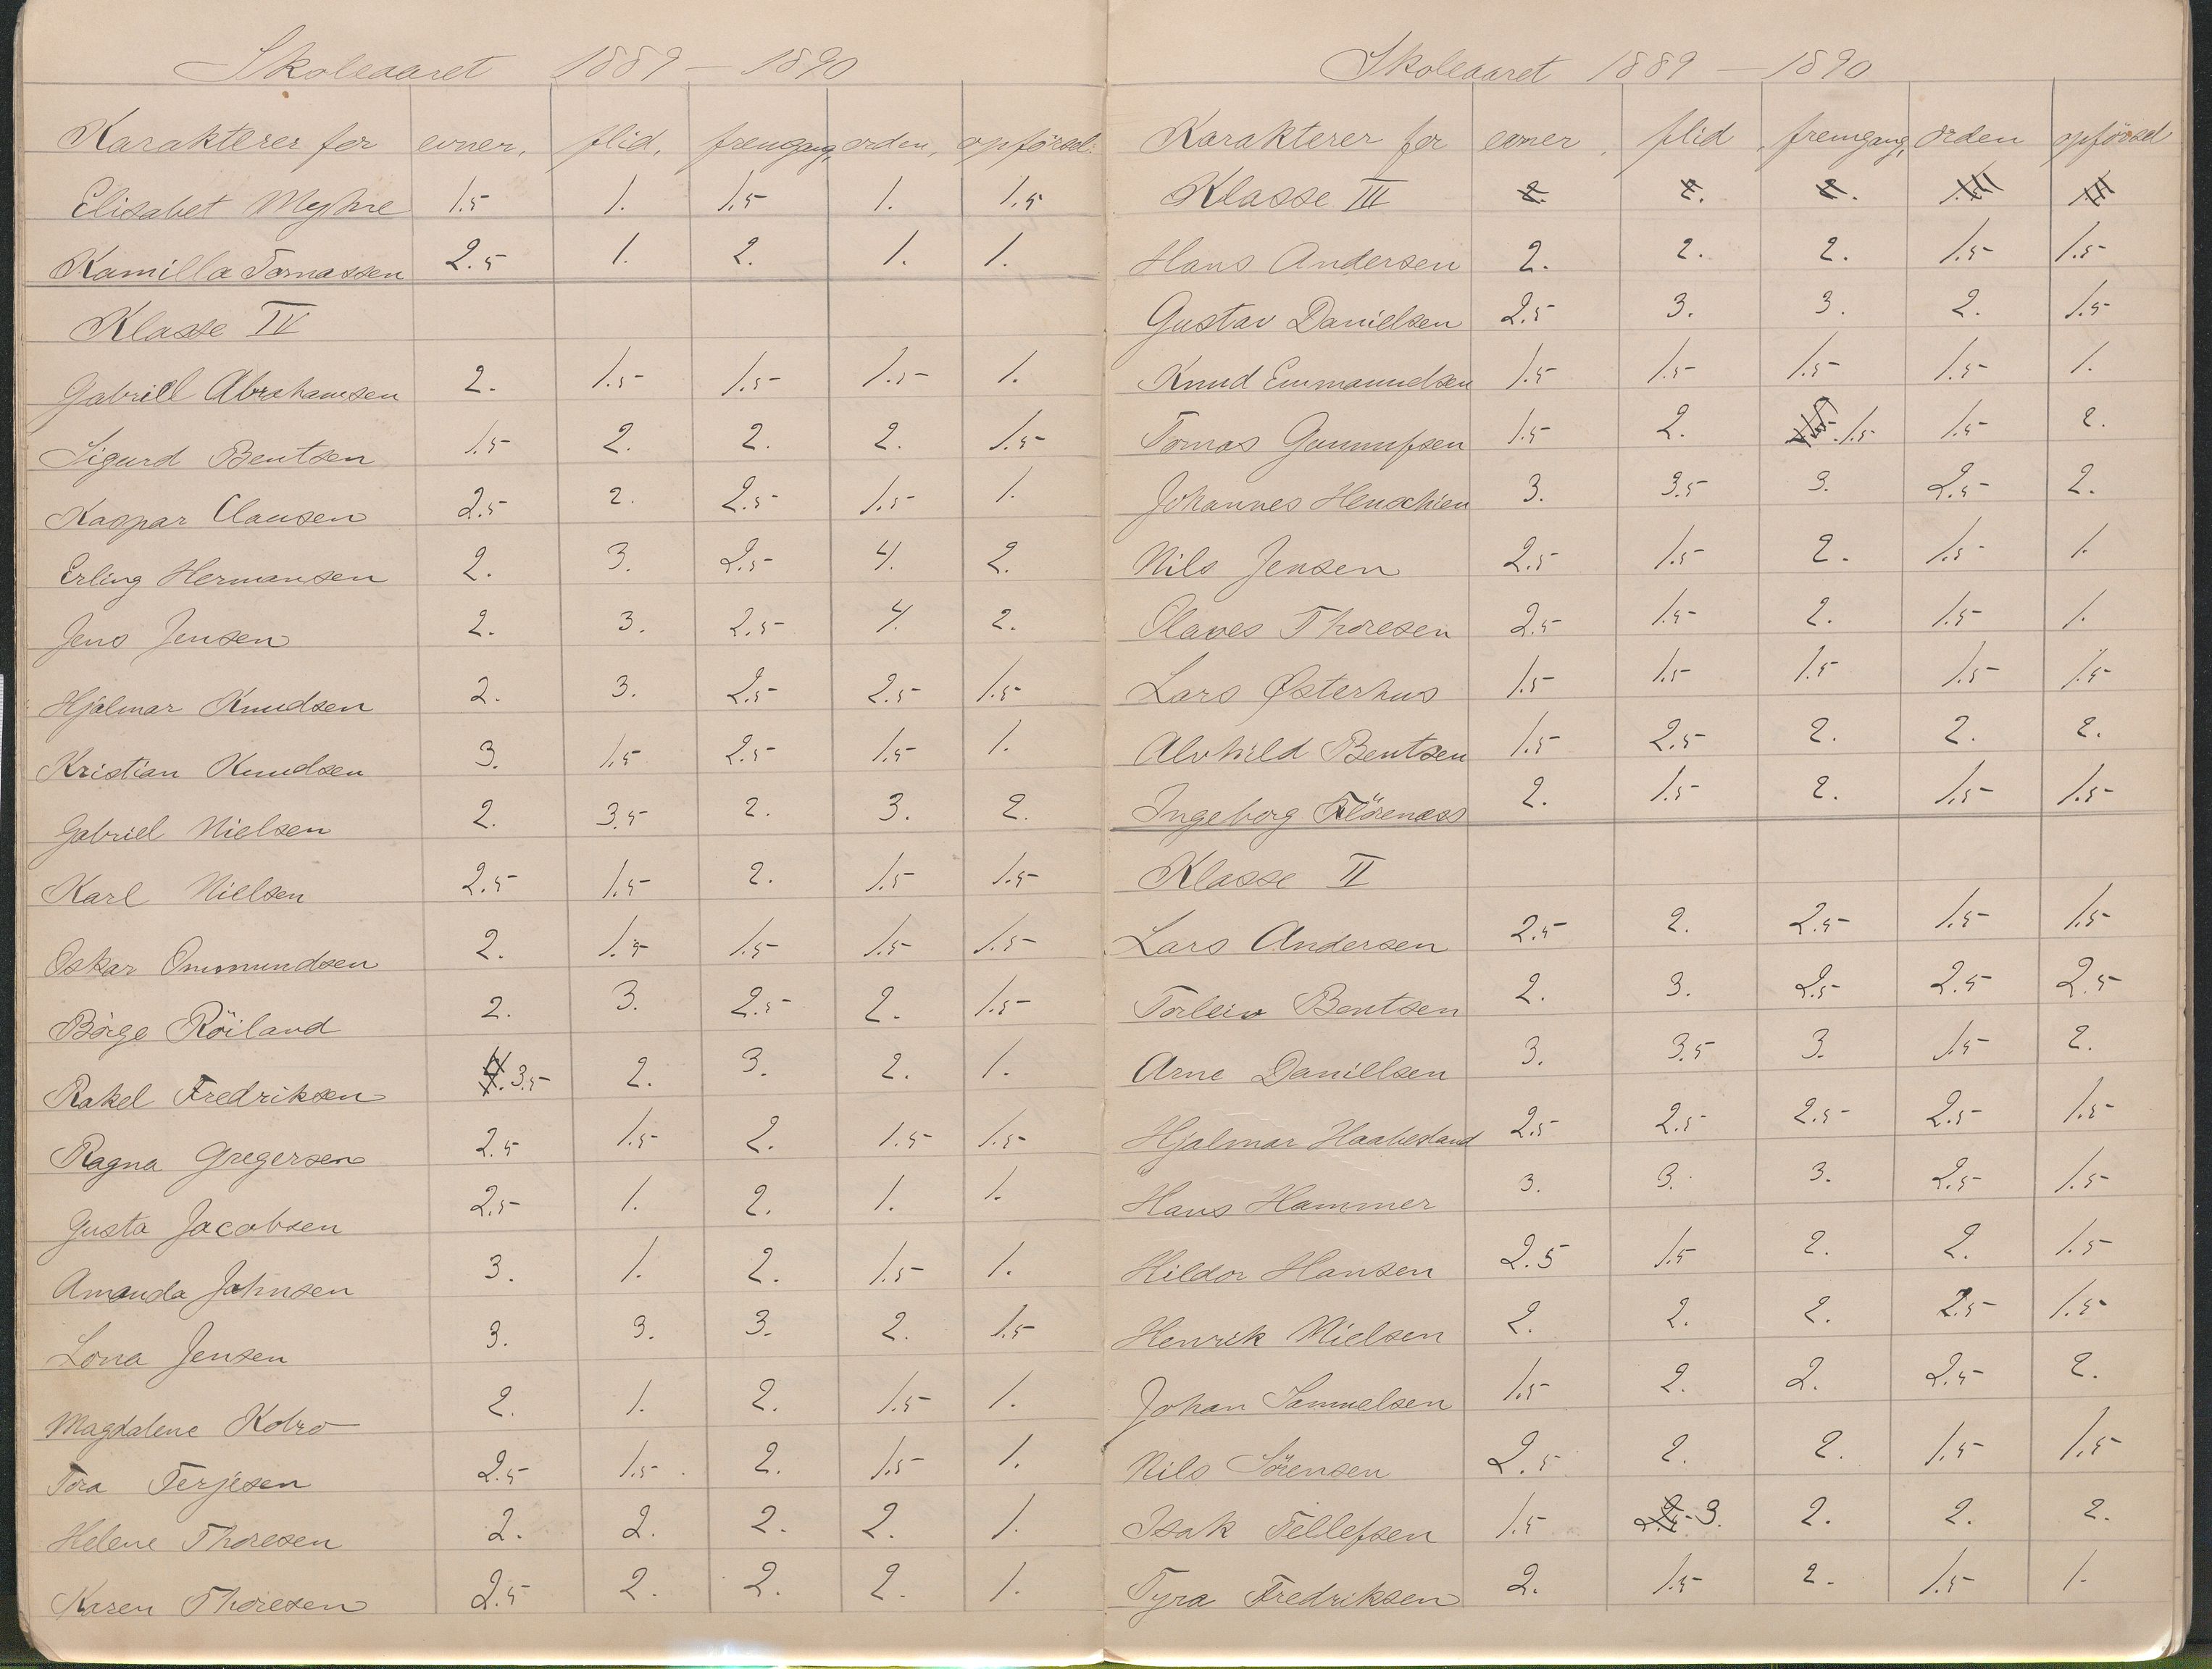 Skoleaaret 1889 — 1890
Karakterer for evner, flid, fremgang, orden, opförsel.
Elisabet Myhre 1.5 1. 1.5 1. 1.5
Kamilla Tomassen 2.5 1. 2. 1. 1.
Klasse IV
Gabriel Abrahamsen 2. 1.5 1.5 1.5 1.
Sigurd Bentsen 1.5 2. 2. 2. 1.5
Kaspar Clausen 2.5 2. 2.5 1.5 1.
Erling Hermansen 2. 3. 2.5 4. 2.
Jens Jensen 2. 3. 2.5 4. 2.
Hjalmar Knudsen 2. 3. 2.5 2.5 1.5
Kristian Knudsen 3. 1.5 2.5 1.5 1.
Gabriel Nielsen 2. 3.5 2. 3. 2.
Karl Nielsen 2.5 1.5 2. 1.5 1.5
Oskar Ommundsen 2. 1.5 1.5 1.5 1.5
Börge Röiland 2. 3. 2.5 2. 1.5
Rakel Fredriksen 3.5 2. 3. 2. 1.
Ragna Gregersen 2.5 1.5 2. 1.5 1.5
Gusta Jacobsen 2.5 1. 2. 1. 1.
Amanda Johnsen 3. 1. 2. 1.5 1.
Lona Jensen 3. 3. 3. 2. 1.5
Magdalene Kobro 2. 1. 2. 1.5 1.
Tora Terjesen 2.5 1.5 2. 1.5 1.
Helene Thoresen 2. 2. 2. 2. 1.
Karen Thoresen 2.5 2. 2. 2. 1.
Skoleaaret 1889 — 1890
Karakterer for evner, flid, fremgang, orden opförsel
Klasse III
Hans Andersen 2. 2. 2. 1.5 1.5
Gustav Danielsen 2.5 3. 3. 2. 1.5
Knud Emmanuelsen 1.5 1.5 1.5 1.5 1.
Tomas Gunnufsen 1.5 2. 1.5 1.5 2.
Johannes Henschien 3. 3.5 3. 2.5 2.
Nils Jensen 2.5 1.5 2. 1.5 1.
Olaves Thoresen 2.5 1.5 2. 1.5 1.
Lars Østerhus 1.5 1.5 1.5 1.5 1.5
Alvhild Bentsen 1.5 2.5 2. 2. 2.
Ingeborg Flörenæs 2. 1.5 2. 1.5 1.5
Klasse II
Lars Andersen 2.5 2. 2.5 1.5 1.5
Torleiv Bentsen 2. 3. 2.5 2.5 2.5
Arne Danielsen 3. 3.5 3. 1.5 2.
Hjalmar Haabesland 2.5 2.5 2.5 2.5 1.5
Hans Hammer 3. 3. 3. 2.5 1.5
Hildor Hansen 2.5 1.5 2. 2. 1.5
Henrik Nielsen 2. 2. 2. 2.5 1.5
Johan Samuelsen 1.5 2. 2. 2.5 2.
Nils Sörensen 2.5 2. 2. 1.5 1.5
Isak Tellefsen 1.5 3. 2. 2. 2.
Tyra Fredriksen 2. 1.5 2. 1.5 1.